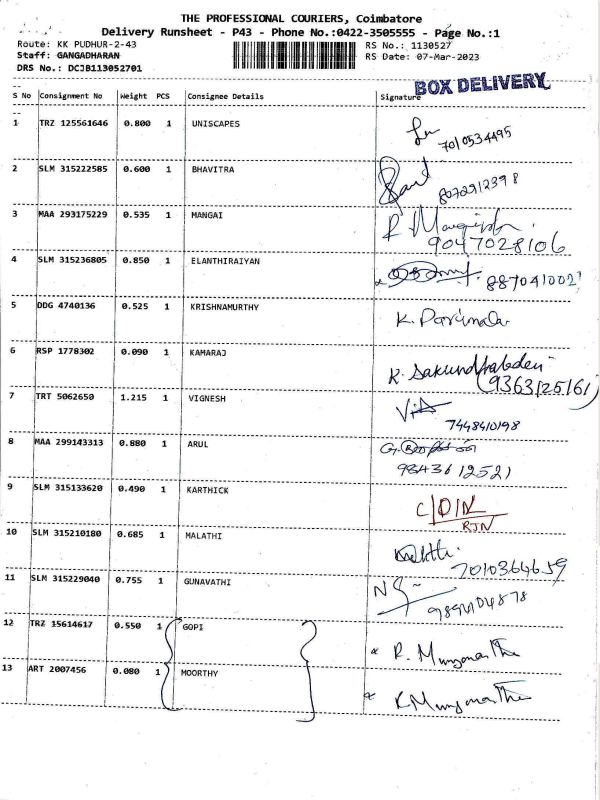 THE PROFESSIONAL COURIERS, Coimbatore
Delivery Runsheet - P43 - Phone No.:0422-3505555 - Page No.:1
Route: KK PUDHUR-2-43 RS No.: 1130527
Staff: GANGADHARAN RS Date: 07-Mar-2023
DRS No.: DCJB113052701
BOX DELIVERY
S No Consignment No Weight PCS Consignee Details Signature
1 TRZ 125561646 0.800 1 UNISCAPES
7010534495
2 SLM 315222585 0.600 1 BHAVITRA
8072912398
3 MAA 293175229 0.535 1 MANGAI
9047028106
4 SLM 315236805 0.850 1 ELANTHIRAIYAN
887041002
5 DDG 4740136 0.525 1 KRISHNAMURTHY
K. Parimala
6 RSP 1778302 0.090 1 KAMARAJ
K. Sakundhaladevi
(9363125161)
7 TRT 5062650 1.215 1 VIGNESH
7448410198
8 MAA 299143313 0.880 1 ARUL
9843612521
9 SLM 315133620 0.490 1 KARTHICK
RJN
10 SLM 315210180 0.685 1 MALATHI
7010364659
11 SLM 315229040 0.755 1 GUNAVATHI
9894104878
12 TRZ 15614617 0.550 1 GOPI
13 ART 2007456 0.080 1 MOORTHY